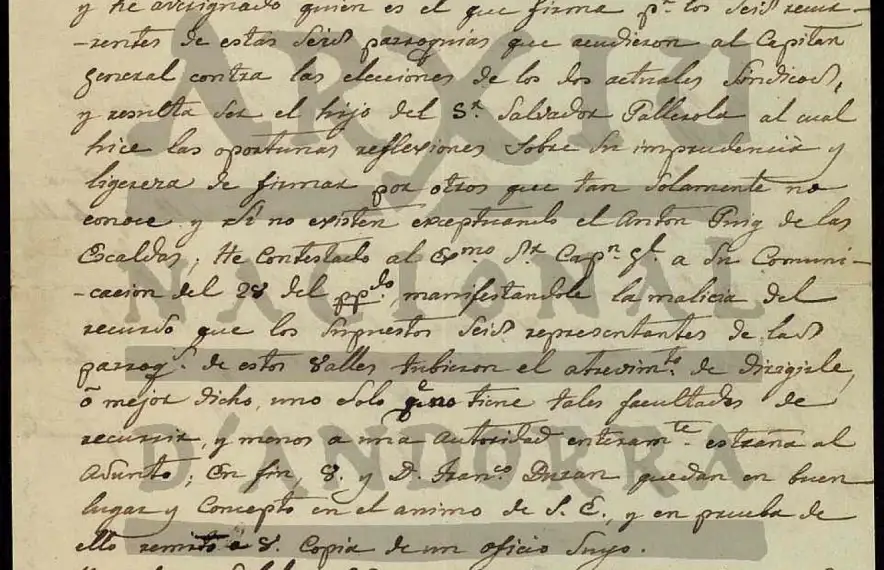 y he aveignado quien es el que firma pr. los seis recur-
-rentes de estas seis parroquias que acudieron al Capitan
general contra las elecciones de los dos actuales Sindicos,
y resulta ser el hijo del Sr. Salvador Pallerola al cual
hice las oportunas reflexiones sobre su imprudencia y
ligereza de firmar por otros que tan solamente no
conoce y si no existen exceptuando el Anton Puig de las
Escaldas; He Contestado al Exmo Sr. Capn. Gl. a su Comuni-
-cacion del 28 del pp.do, manifestandole la malicia del
recurso que los supuestos seis representantes de las
parroqs. de estos Valles tubieron el atrevimto. de dirigirle,
ó mejor dicho, uno solo q.e no tiene tales facultades de
recurrir, y menos a una autoridad enteramte. estraña al
Asunto; En fin, V. y D. Franco. Duran quedan en buen
lugar y Concepto en el animo de S. E., y en prueba de
ello remito á V. Copia de un oficio suyo.
ARXIU
NACIONAL
D'ANDORRA